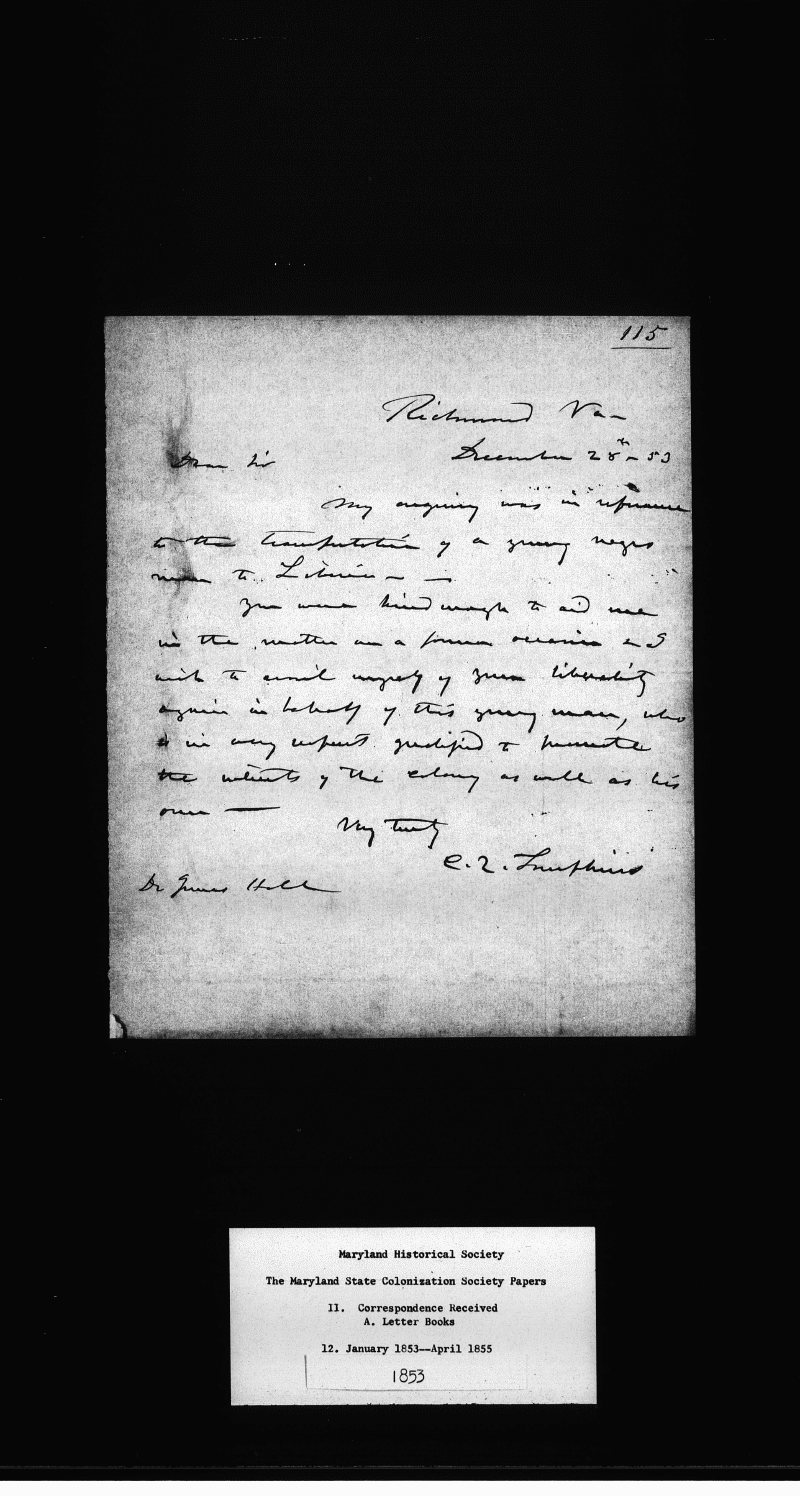 115
Richmond Va -
Dear Sir December 28th - 53
My enquiry was in reference
to the transportation of a young negro
man to Liberia - -
You were kind enough to aid me
in the matter on a former occasion and I
wish to avail myself of your liberality
again in behalf of this young man, who
is in every respect qualified to promote
the interests of the colony as well as his
own —
Very truly
C. Q. Tompkins
Dr James Hall
Maryland Historical Society
The Maryland State Colonization Society Papers
11. Correspondence Received
A. Letter Books
12. January 1853--April 1855
1853